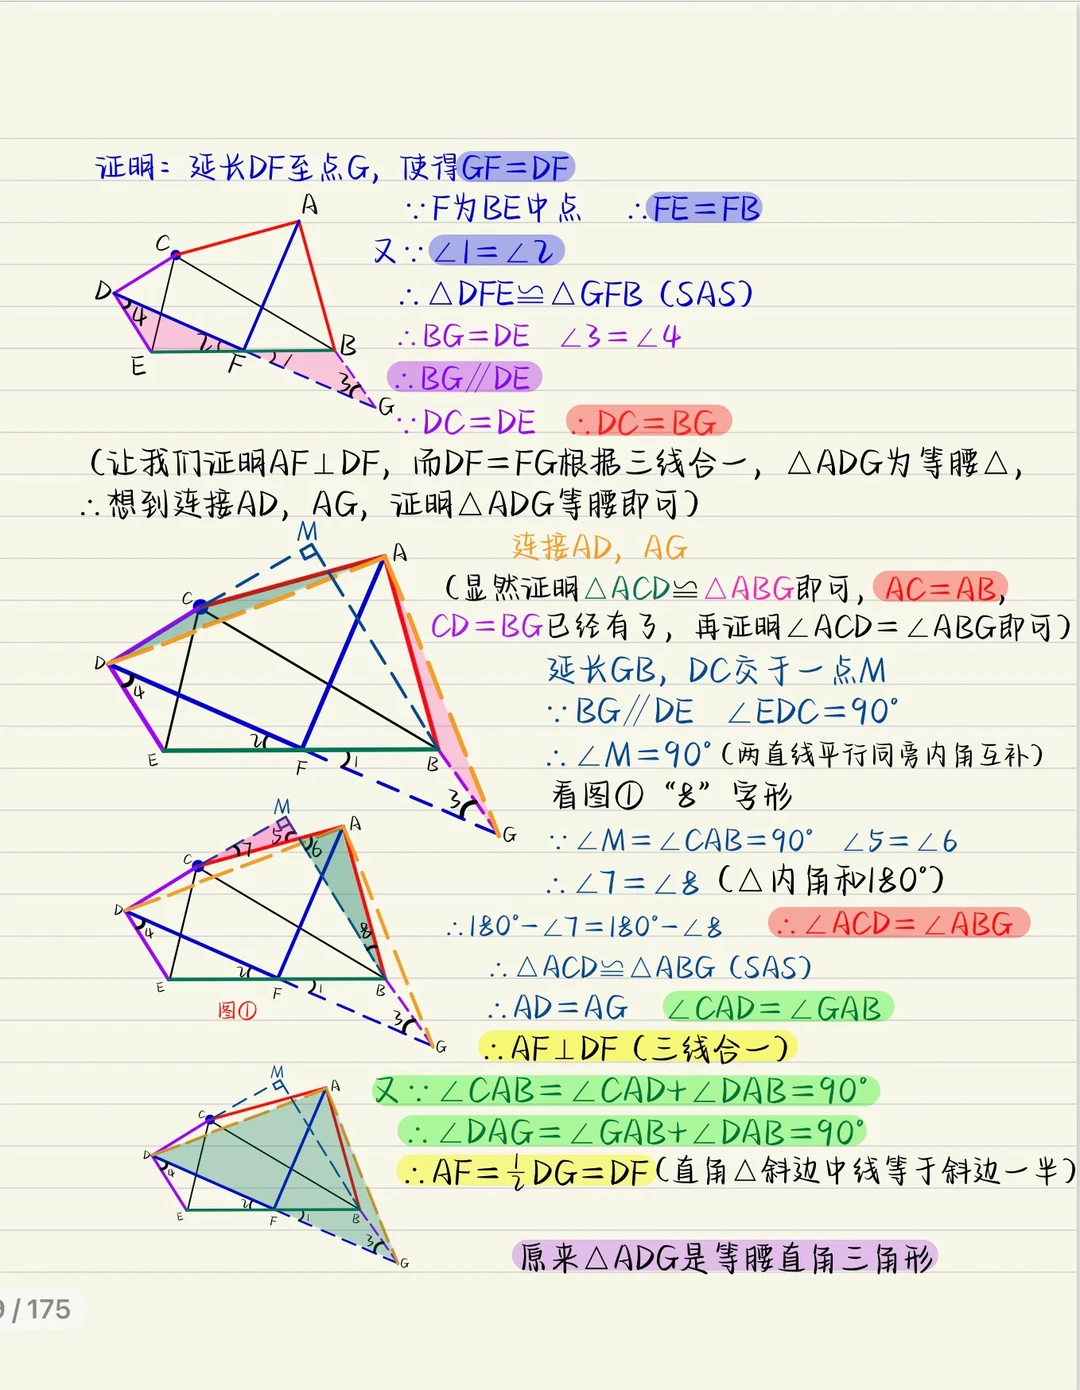 证明：延长DF至点G，使得GF=DF
∵F为BE中点 ∴FE=FB
又∵∠1=∠2
∴△DFE≌△GFB（SAS）
∴BG=DE ∠3=∠4
∴BG∥DE
∵DC=DE ∴DC=BG
A
C
D
4
2
1
B
E
F
3
G
（让我们证明AF⊥DF，而DF=FG根据三线合一，△ADG为等腰△，
∴想到连接AD，AG，证明△ADG等腰即可）
连接AD，AG
（显然证明△ACD≌△ABG即可，AC=AB，
CD=BG已经有了，再证明∠ACD=∠ABG即可）
延长GB，DC交于一点M
∵BG∥DE ∠EDC=90°
∴∠M=90°（两直线平行同旁内角互补）
M
A
C
D
4
2
1
E
F
B
3
G
看图① “8”字形
∵∠M=∠CAB=90° ∠5=∠6
∴∠7=∠8（△内角和180°）
∴180°-∠7=180°-∠8 ∴∠ACD=∠ABG
∴△ACD≌△ABG（SAS）
∴AD=AG ∠CAD=∠GAB
∴AF⊥DF（三线合一）
M
A
5
6
7
C
D
4
8
2
1
E
F
B
3
G
图①
又∵∠CAB=∠CAD+∠DAB=90°
∴∠DAG=∠GAB+∠DAB=90°
∴AF=½DG=DF（直角△斜边中线等于斜边一半）
M
A
C
D
4
2
1
E
F
B
3
G
原来△ADG是等腰直角三角形
9 / 175